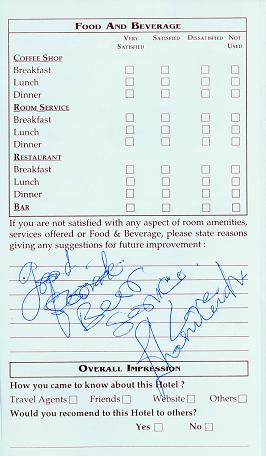 FOOD AND BEVERAGE
VERY SATISFIED SATISFIED DISSATISFIED NOT USED
COFFEE SHOP
Breakfast
Lunch
Dinner
ROOM SERVICE
Breakfast
Lunch
Dinner
RESTAURANT
Breakfast
Lunch
Dinner
BAR
If you are not satisfied with any aspect of room amenities,
services offered or Food & Beverage, please state reasons
giving any suggestions for future improvement :
Good
Best Service
Love
OVERALL IMPRESSION
How you came to know about this Hotel ?
Travel Agents Friends Website Others
Would you recomend to this Hotel to others?
Yes No